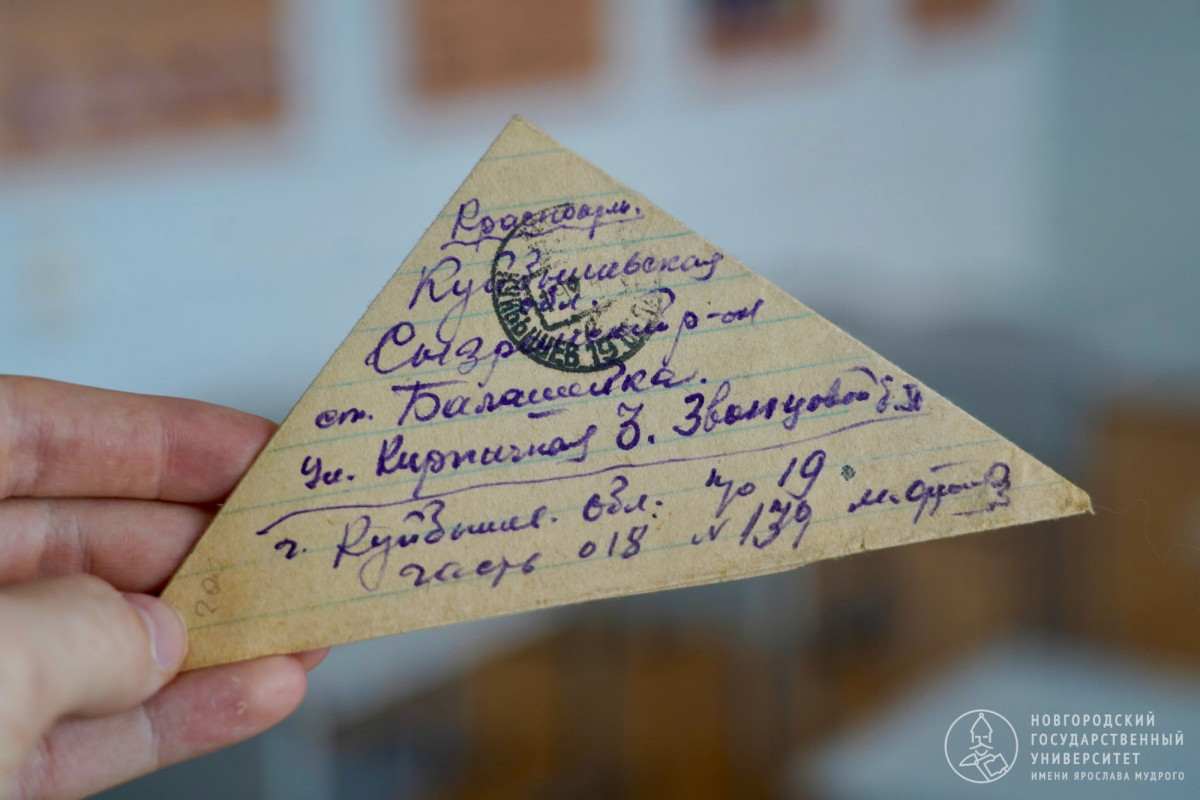 Красноарм.
Куйбышевская
обл.
Сызранский р-он
ст. Балашейка.
ул. Кирпичная 3. Звонцовой Е.П
г. Куйбышев. обл. п/о 19
часть 018 № 139
КУЙБЫШЕВ 19
НОВГОРОДСКИЙ
ГОСУДАРСТВЕННЫЙ
УНИВЕРСИТЕТ
ИМЕНИ ЯРОСЛАВА МУДРОГО